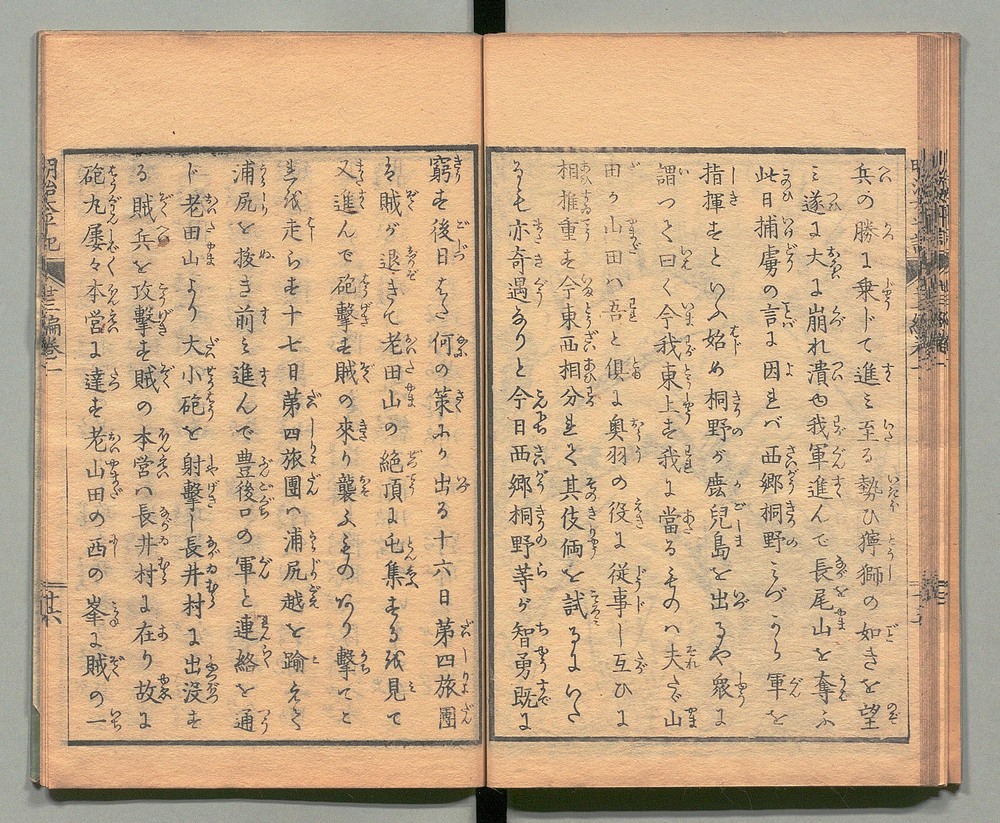 兵の勝に乗じて進み至る勢ひ獰獅の如きを望
み遂に大に崩れ潰ゆ我軍進んで長尾山を奪ふ
此日捕虜の言に因れバ西郷桐野みづから軍を
指揮すといふ始め桐野が鹿児島を出るや衆に
謂つて曰く今我東上す我に當るものハ夫たゞ山
田か山田ハ吾と倶に奥羽の役に従事し互ひに
相推重す今東西相分れて其伎倆を試るにいた
るも亦奇遇なりと今日西郷桐野等が智勇既に
窮す後日また何の策にか出る十六日第四旅團
は賊が退きて老田山の絶頂に屯集するを見て
又進んで砲撃す賊の來り襲ふものあり撃てこ
れを走らす十七日第四旅團ハ浦尻越を踰えて
浦尻を抜き前み進んで豊後口の軍と連絡を通
じ老田山より大小砲を射撃し長井村に出没す
る賊兵を攻撃す賊の本営ハ長井村に在り故に
砲丸屡々本営に達す老山田の西の峯に賊の一
明治太平記
廿三編巻一
廿六